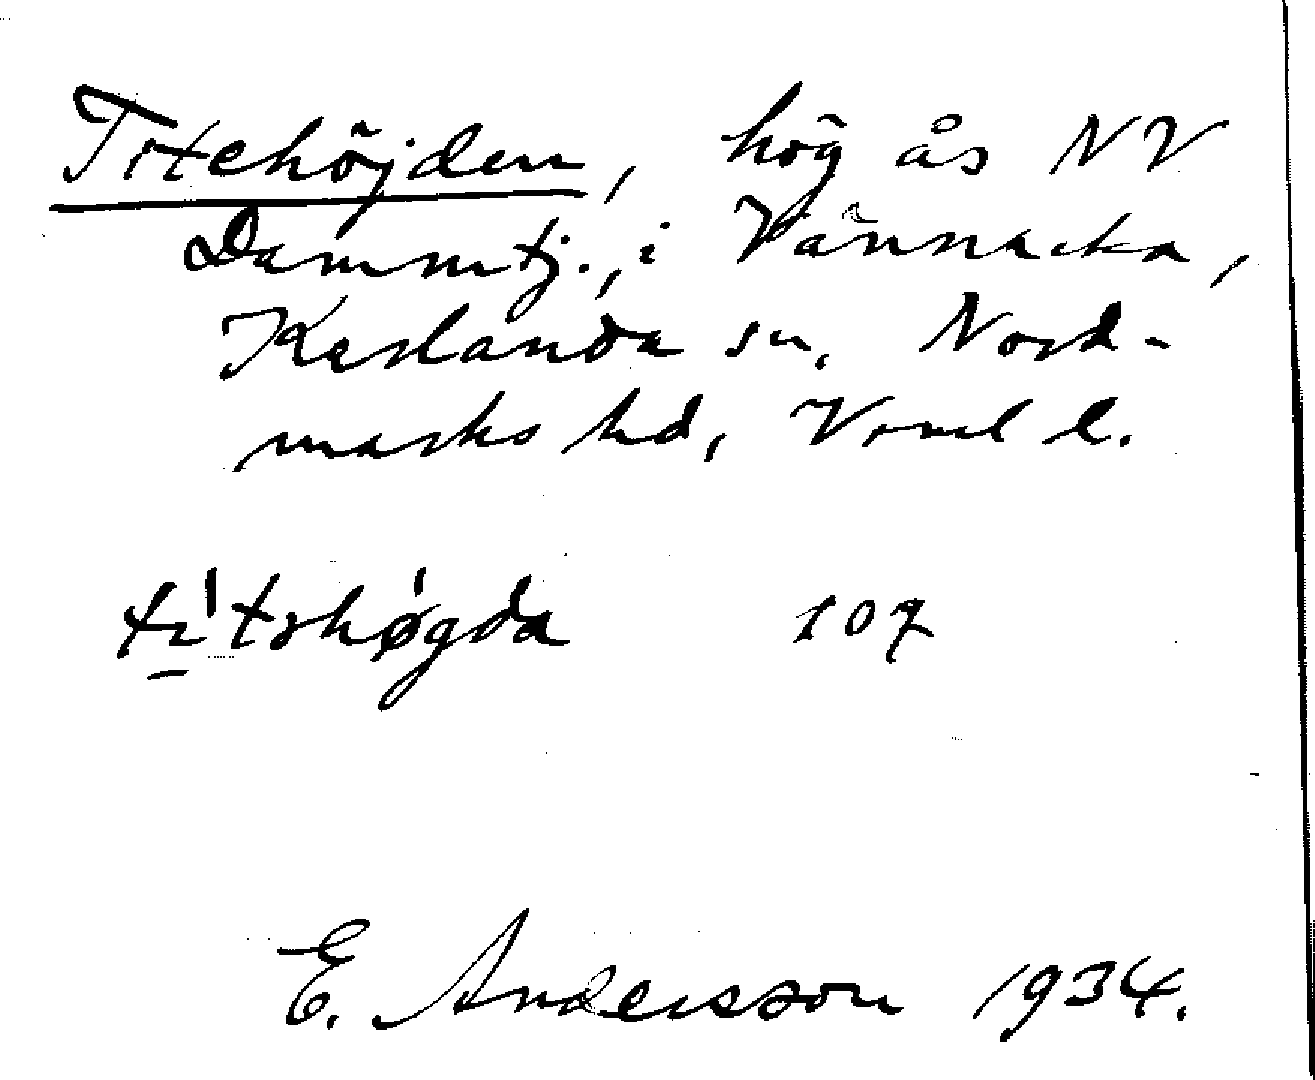 Titehöjden, hög ås NV
Dammtj., i Vännacka,
Karlanda sn, Nord-
marks hd, Vrml l.
tı̍təhø̍gda 107
E. Andersson 1934.